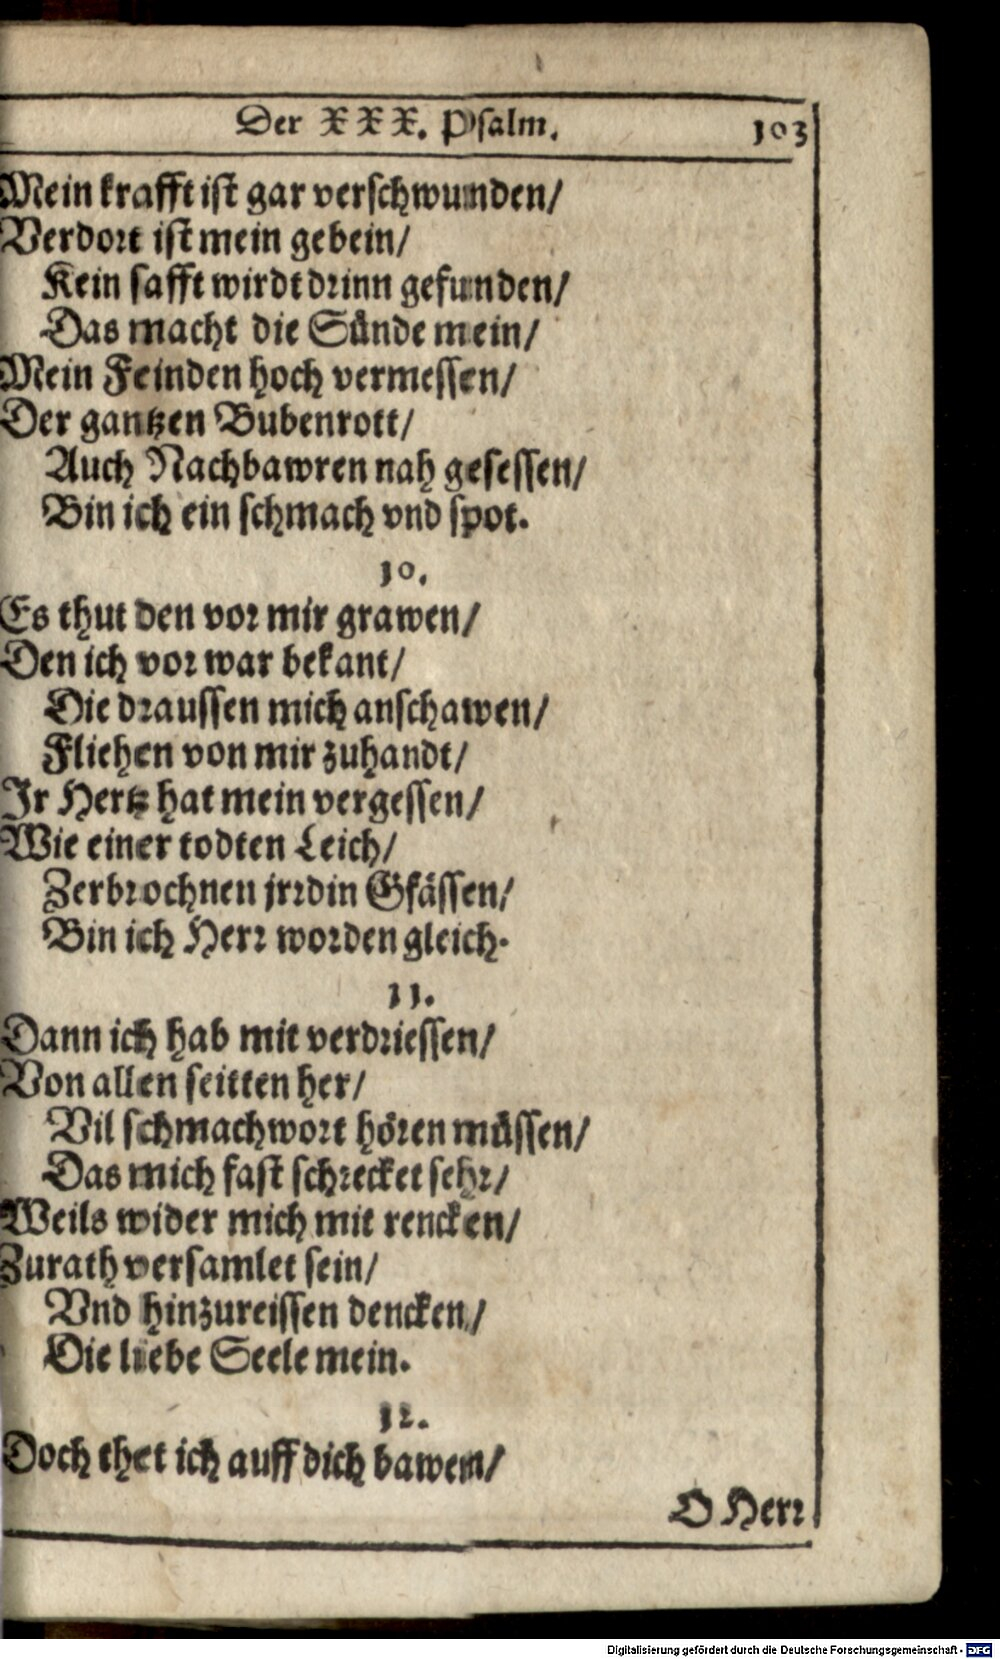 Der XXX. Psalm. 103
Mein krafft ist gar verschwunden/
Verdort ist mein gebein/
Kein safft wirdt drinn gefunden/
Das macht die Sünde mein/
Mein Feinden hoch vermessen/
Der gantzen Bubenrott/
Auch Nachbawren nah gesessen/
Bin ich ein schmach vnd spot.
10.
Es thut den vor mir grawen/
Den ich vor war bekant/
Die draussen mich anschawen/
Fliehen von mir zuhandt/
Ir Hertz hat mein vergessen/
Wie einer todten Leich/
Zerbrochnen jrrdin Gfässen/
Bin ich Herr worden gleich.
11.
Dann ich hab mit verdriessen/
Von allen seitten her/
Vil schmachwort hören müssen/
Das mich fast schrecket sehr/
Weils wider mich mit rencken/
Zurath versamlet sein/
Vnd hinzureissen dencken/
Die liebe Seele mein.
12.
Doch thet ich auff dich bawen/
O Herr
Digitalisierung gefördert durch die Deutsche Forschungsgemeinschaft - DFG